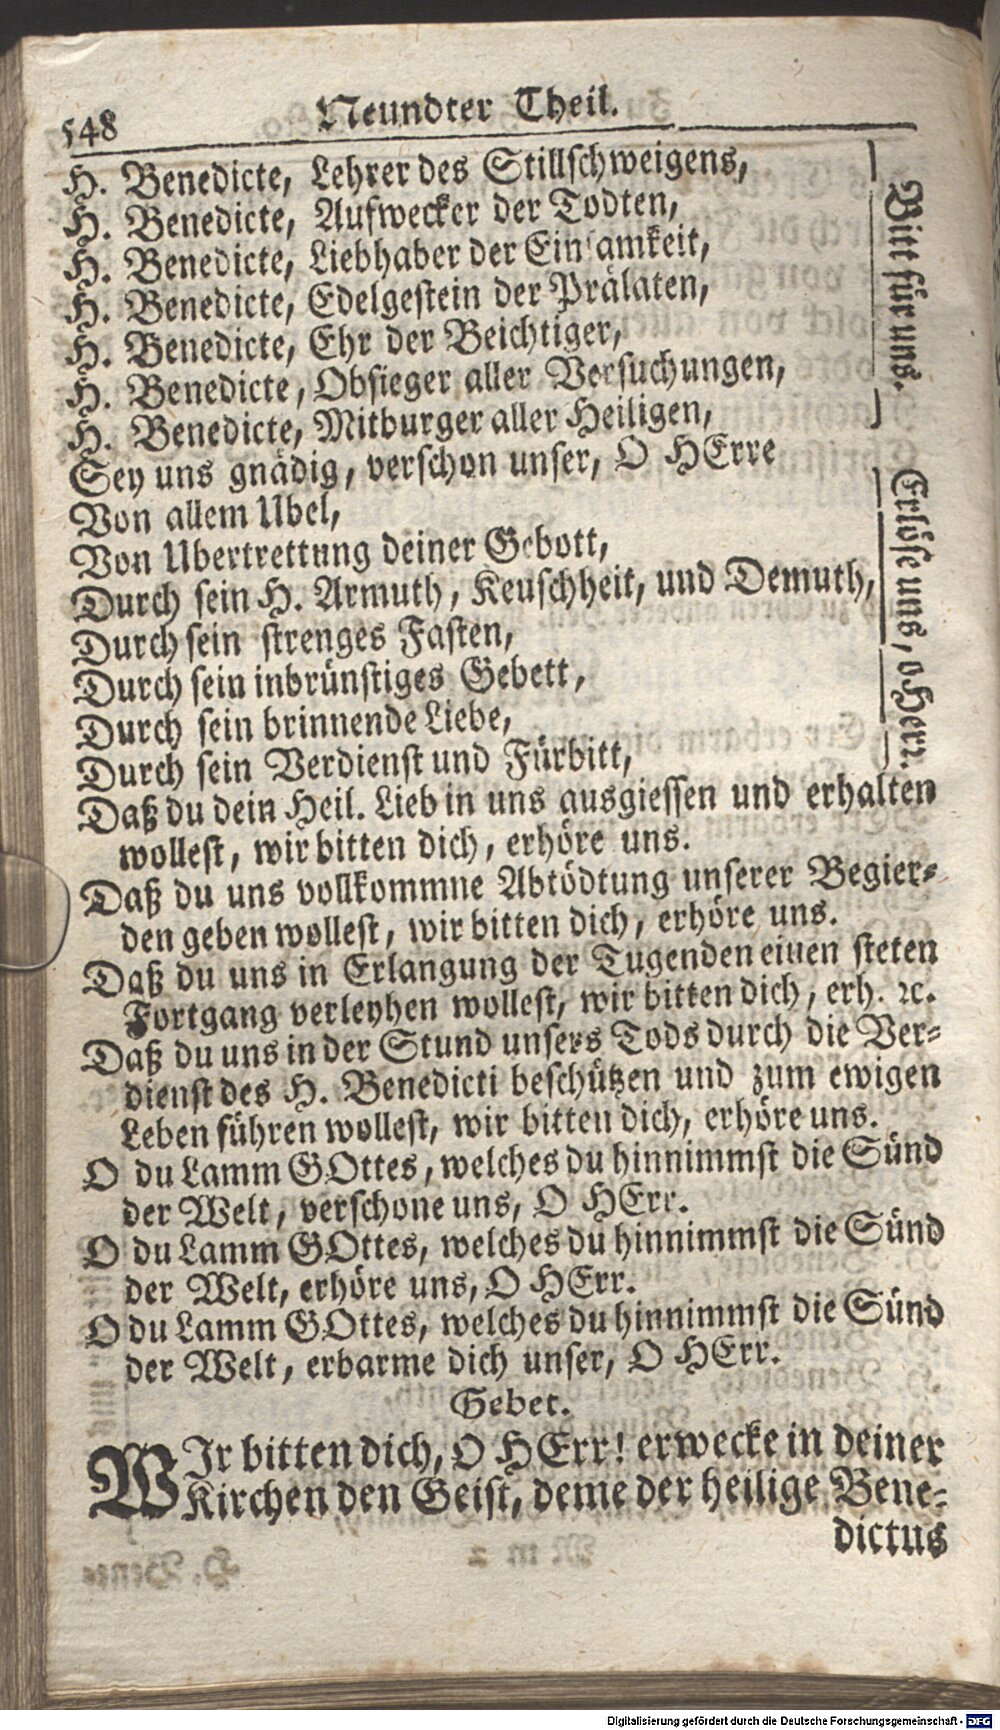 548
Neundter Theil.
H. Benedicte, Lehrer des Stillschweigens,
H. Benedicte, Aufwecker der Todten,
H. Benedicte, Liebhaber der Einsamkeit,
H. Benedicte, Edelgestein der Prälaten,
H. Benedicte, Ehr der Beichtiger,
H. Benedicte, Obsieger aller Versuchungen,
H. Benedicte, Mitburger aller Heiligen,
Bitt für uns.
Sey uns gnädig, verschon unser, O HErre
Von allem Ubel,
Von Ubertrettung deiner Gebott,
Durch sein H. Armuth, Keuschheit, und Demuth,
Durch sein strenges Fasten,
Durch sein inbrünstiges Gebett,
Durch sein brinnende Liebe,
Durch sein Verdienst und Fürbitt,
Erlöse uns, o Herr.
Daß du dein Heil. Lieb in uns ausgiessen und erhalten
wollest, wir bitten dich, erhöre uns.
Daß du uns vollkommne Abtödtung unserer Begier-
den geben wollest, wir bitten dich, erhöre uns.
Daß du uns in Erlangung der Tugenden einen steten
Fortgang verleyhen wollest, wir bitten dich, erh. ꝛc.
Daß du uns in der Stund unsers Tods durch die Ver-
dienst des H. Benedicti beschützen und zum ewigen
Leben führen wollest, wir bitten dich, erhöre uns.
O du Lamm GOttes, welches du hinnimmst die Sünd
der Welt, verschone uns, O HErr.
O du Lamm GOttes, welches du hinnimmst die Sünd
der Welt, erhöre uns, O HErr.
O du Lamm GOttes, welches du hinnimmst die Sünd
der Welt, erbarme dich unser, O HErr.
Gebet.
WIr bitten dich, O HErr! erwecke in deiner
Kirchen den Geist, deme der heilige Bene-
dictus
Digitalisierung gefördert durch die Deutsche Forschungsgemeinschaft - DFG